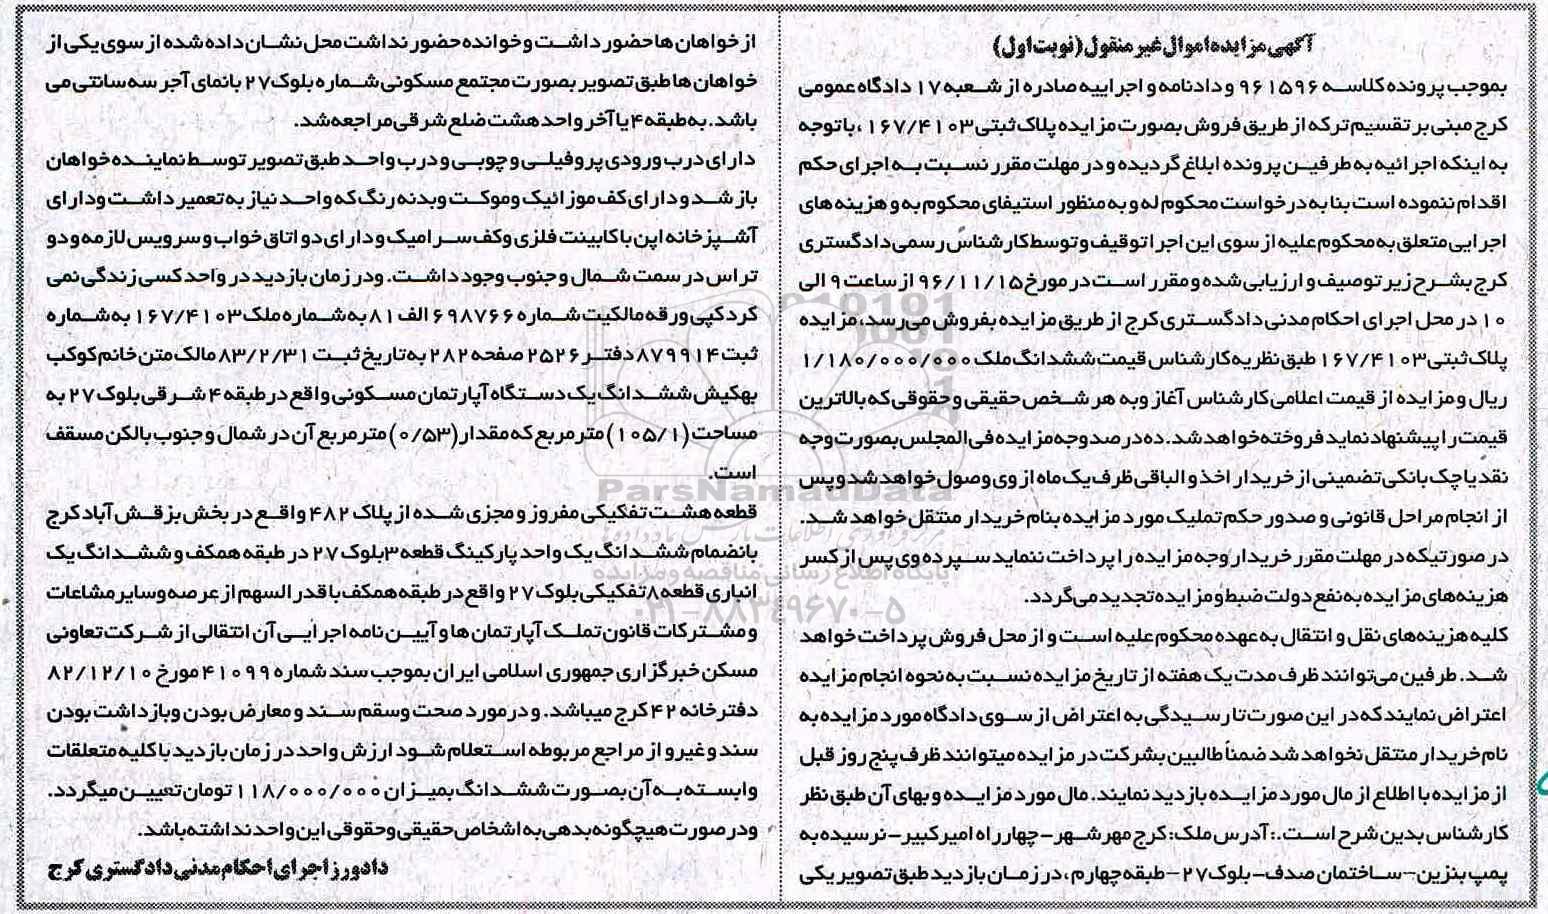 آگهی مزایده اموال غیر منقول (نوبت اول)
بموجب پرونده کلاسه ۹۶۱۵۹۶ و دادنامه و اجراییه صادره از شعبه ۱۷ دادگاه عمومی
کرج مبنی بر تقسیم ترکه از طریق فروش بصورت مزایده پلاک ثبتی ۱۶۷/۴۱۰۳، با توجه
به اینکه اجرائیه به طرفین پرونده ابلاغ گردیده و در مهلت مقرر نسبت به اجرای حکم
اقدام ننموده است بنا به درخواست محکوم له و به منظور استیفای محکوم به و هزینه های
اجرایی متعلق به محکوم علیه از سوی این اجرا توقیف و توسط کارشناس رسمی دادگستری
کرج بشرح زیر توصیف و ارزیابی شده و مقرر است در مورخ ۹۶/۱۱/۱۵ از ساعت ۹ الی
۱۰ در محل اجرای احکام مدنی دادگستری کرج از طریق مزایده بفروش می‌رسد، مزایده
پلاک ثبتی ۱۶۷/۴۱۰۳ طبق نظریه کارشناس قیمت ششدانگ ملک ۱/۱۸۰/۰۰۰/۰۰۰
ریال و مزایده از قیمت اعلامی کارشناس آغاز و به هر شخص حقیقی و حقوقی که بالاترین
قیمت را پیشنهاد نماید فروخته خواهد شد. ده درصد وجه مزایده فی المجلس بصورت وجه
نقد یا چک بانکی تضمینی از خریدار اخذ و الباقی ظرف یک ماه از وی وصول خواهد شد و پس
از انجام مراحل قانونی و صدور حکم تملیک مورد مزایده بنام خریدار منتقل خواهد شد.
در صورتیکه در مهلت مقرر خریدار وجه مزایده را پرداخت ننماید سپرده وی پس از کسر
هزینه‌های مزایده به نفع دولت ضبط و مزایده تجدید می‌گردد.
کلیه هزینه‌های نقل و انتقال به عهده محکوم علیه است و از محل فروش پرداخت خواهد
شد. طرفین می‌توانند ظرف مدت یک هفته از تاریخ مزایده نسبت به نحوه انجام مزایده
اعتراض نمایند که در این صورت تا رسیدگی به اعتراض از سوی دادگاه مورد مزایده به
نام خریدار منتقل نخواهد شد ضمناً طالبین بشرکت در مزایده میتوانند ظرف پنج روز قبل
از مزایده با اطلاع از مال مورد مزایده بازدید نمایند. مال مورد مزایده و بهای آن طبق نظر
کارشناس بدین شرح است.: آدرس ملک: کرج مهرشهر – چهارراه امیرکبیر – نرسیده به
پمپ بنزین – ساختمان صدف – بلوک ۲۷ – طبقه چهارم، در زمان بازدید طبق تصویر یکی
از خواهان ها حضور داشت و خوانده حضور نداشت محل نشان داده شده از سوی یکی از
خواهان ها طبق تصویر بصورت مجتمع مسکونی شماره بلوک ۲۷ با نمای آجر سه سانتی می
باشد. به طبقه ۴ یا آخر واحد هشت ضلع شرقی مراجعه شد.
دارای درب ورودی پروفیلی و چوبی و درب واحد طبق تصویر توسط نماینده خواهان
باز شد و دارای کف موزائیک و موکت و بدنه رنگ که واحد نیاز به تعمیر داشت ودارای
آشپزخانه اپن با کابینت فلزی و کف سرامیک و دارای دو اتاق خواب و سرویس لازمه و دو
تراس در سمت شمال و جنوب وجود داشت. ودر زمان بازدید در واحد کسی زندگی نمی
کرد کپی ورقه مالکیت شماره ۶۹۸۷۶۶ الف ۸۱ به شماره ملک ۱۶۷/۴۱۰۳ به شماره
ثبت ۸۷۹۹۱۴ دفتر ۲۵۲۶ صفحه ۲۸۲ به تاریخ ثبت ۸۳/۲/۳۱ مالک متن خانم کوکب
بهکیش ششدانگ یک دستگاه آپارتمان مسکونی واقع در طبقه ۴ شرقی بلوک ۲۷ به
مساحت (۱۰۵/۱) متر مربع که مقدار (۰/۵۳) متر مربع آن در شمال و جنوب بالکن مسقف
است.
قطعه هشت تفکیکی مفروز و مجزی شده از پلاک ۴۸۲ واقع در بخش بزقش آباد کرج
بانضمام ششدانگ یک واحد پارکینگ قطعه ۳ بلوک ۲۷ در طبقه همکف و ششدانگ یک
انباری قطعه ۸ تفکیکی بلوک ۲۷ واقع در طبقه همکف با قدر السهم از عرصه وسایر مشاعات
و مشترکات قانون تملک آپارتمان ها و آیین نامه اجرایی آن انتقالی از شرکت تعاونی
مسکن خبرگزاری جمهوری اسلامی ایران بموجب سند شماره ۴۱۰۹۹ مورخ ۸۲/۱۲/۱۰
دفترخانه ۴۲ کرج میباشد. و در مورد صحت وسقم سند و معارض بودن وبازداشت بودن
سند و غیر و از مراجع مربوطه استعلام شود ارزش واحد در زمان بازدید با کلیه متعلقات
وابسته به آن بصورت ششدانگ بمیزان ۱۱۸/۰۰۰/۰۰۰ تومان تعیین میگردد.
ودر صورت هیچگونه بدهی به اشخاص حقیقی وحقوقی این واحد نداشته باشد.
دادورز اجرای احکام مدنی دادگستری کرج
ParsNamadData
پایگاه اطلاع رسانی مناقصه و مزایده
۰۲۱-۸۸۳۴۹۶۷۰-۵